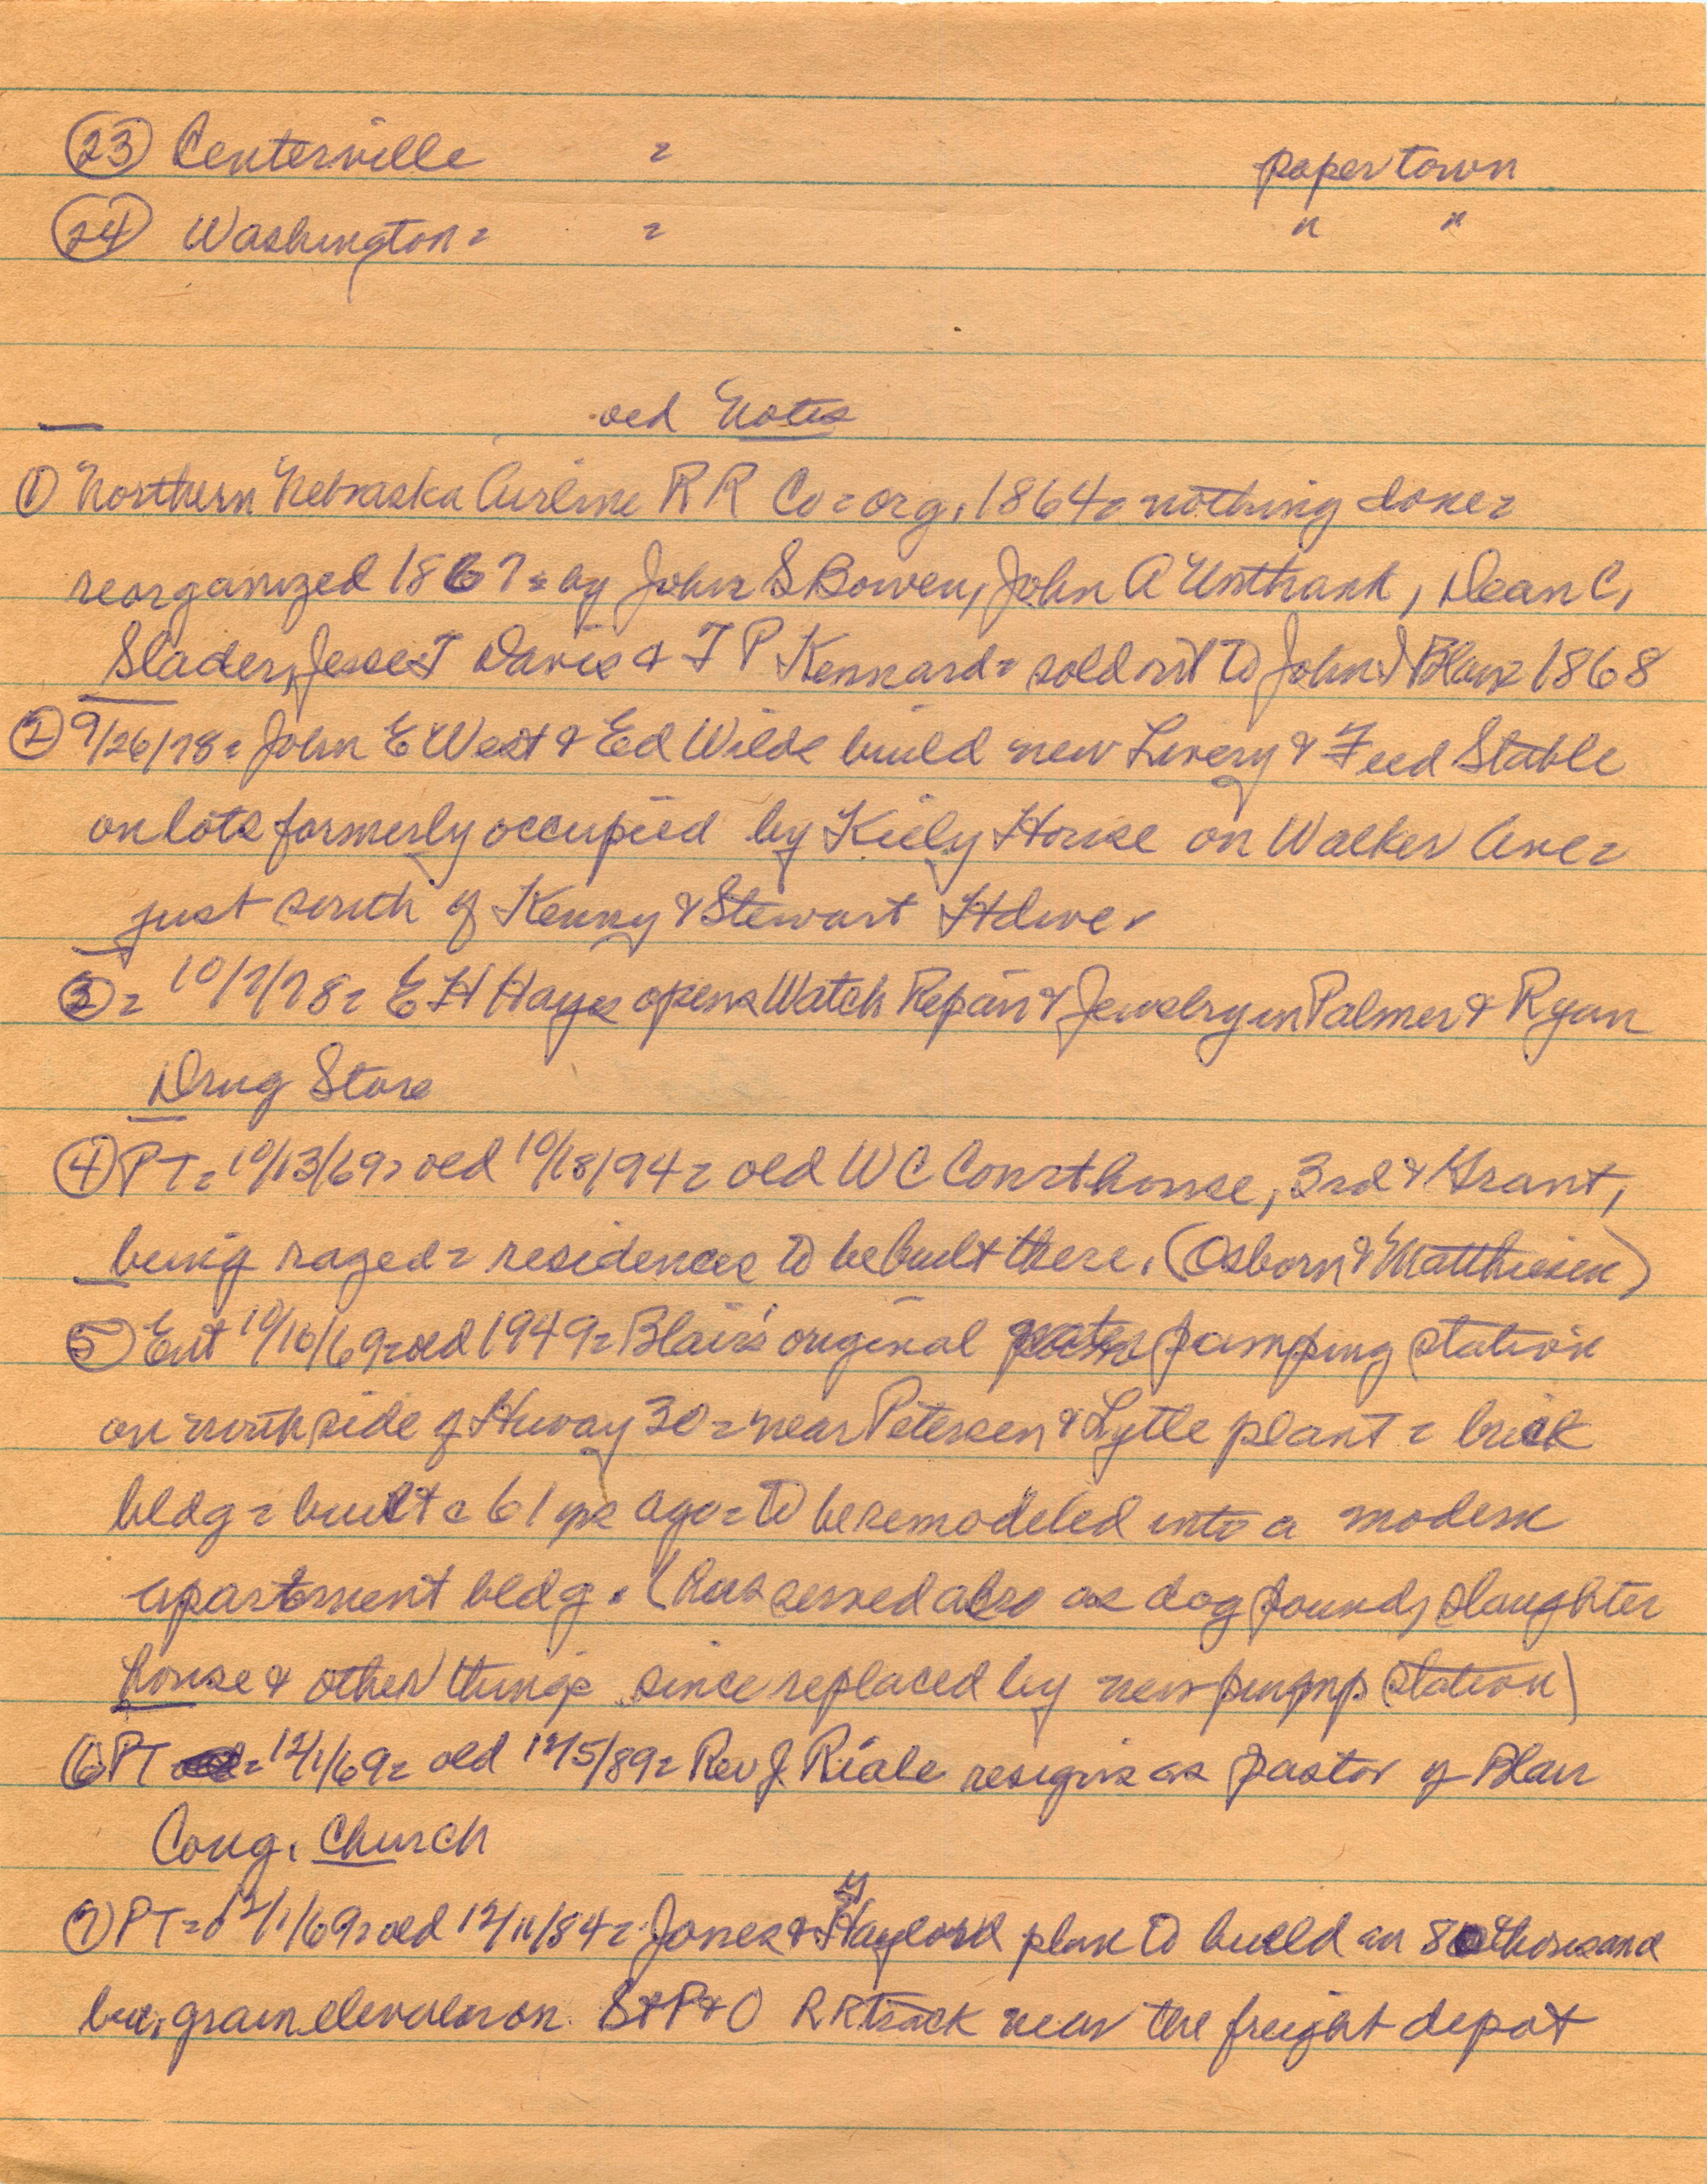 (23) Centerville = paper town
(24) Washington = = " "
old Notes
(1) Northern Nebraska Airline RR Co = org. 1864 = nothing done =
reorganized 1867 = by John S Bowen, John A Unthank, Dean C,
Slader, Jesse T Davis & T P Kennard = sold out to John I Blair 1868
(2) 9/26/78 = John E West & Ed Wilde build new Livery & Feed Stable
on lots formerly occupied by Kiely House on Walker Ave =
just south of Kenny & Stewart Hdwe.
(3) = 10/7/78 = E H Hayes opens Watch Repair & Jewelry in Palmer & Ryan
Drug Store
(4) PT = 10/13/69 = old 10/18/94 = old WC Courthouse, 3rd & Grant,
being razed = residences to be built there. (Osborn & Matthiesen)
(5) Ent 10/10/69 = old 1949 = Blair's original water pumping station
on north side of Hiway 30 = near Petersen & Lytle plant = brick
bldg = built = 61 yrs ago = to be remodeled into a modern
apartment bldg. (has served also as dog pound, slaughter
house & other things since replaced by new pump station)
(6) PT = 12/1/69 = old 12/5/89 = Rev J. Riale resigns as pastor of Blair
Cong. Church
(7) PT = 12/1/69 = old 12/11/84 = Jones & Haylord plan to build an 80 thousand
bu. grain elevator on St P & O RR track near the freight depot